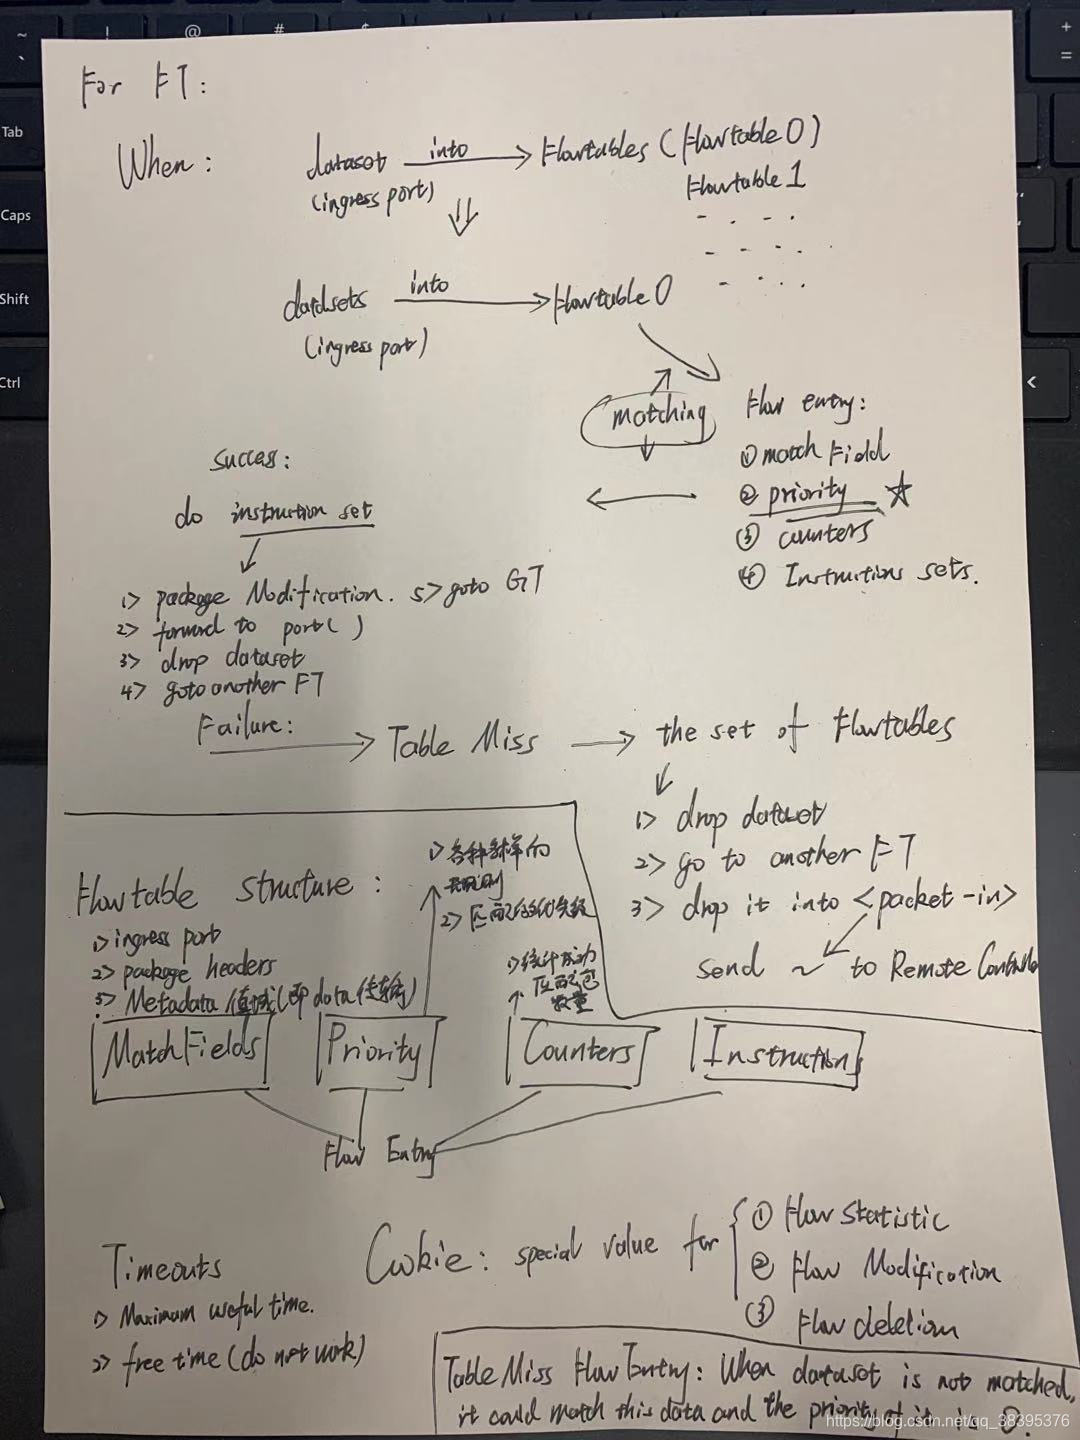 For FT:
When: dataset into Flowtables (Flowtable 0)
(ingress port) Flowtable 1
datasets into Flowtable 0
(ingress port)
matching
Flow entry:
① match Field
② priority ☆
③ counters
④ Instructions sets.
Succes:
do instruction set
1> package Modification. 5> goto GT
2> forward to port( )
3> drop dataset
4> goto another FT
Failure: Table Miss the set of Flowtables
1> drop dataset
2> go to another FT
3> drop it into <packet-in>
send ~ to Remote Controller
Flowtable structure:
1> ingress port
2> package headers
3> Metadata 值域(即data传输)
1> 各种各样的
规则
2> 匹配的优先级
1> 统计成功
匹配包
数量
Match Fields Priority Counters Instruction
Flow Entry
Timeouts
1> Maximum useful time.
2> free time (do not work)
Cookie: special value for
① Flow Statistic
② Flow Modification
③ Flow deletion
Table Miss Flow Entry: When dataset is not matched,
it could match this data and the priority of it is 0.
https://blog.csdn.net/qq_38395376
~
`
!
@
#
$
+
=
Tab
Caps
Shift
Ctrl
<